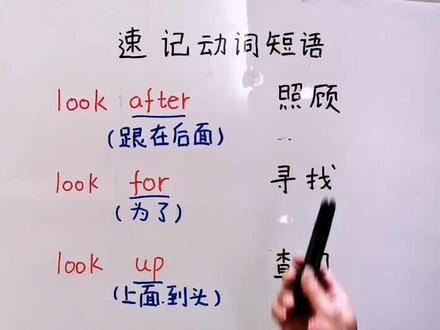 速记动词短语
look after 照顾
(跟在后面)
look for 寻找
(为了)
look up 查
(上面.到头)